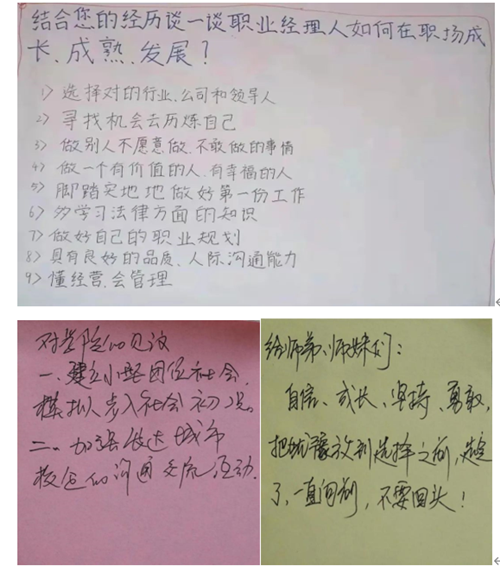 结合您的经历谈一谈职业经理人如何在职场成
长、成熟、发展？
1）选择对的行业、公司和领导人
2）寻找机会去历炼自己
3）做别人不愿意做、不敢做的事情
4）做一个有价值的人、有幸福的人
5）脚踏实地地做好第一份工作
6）多学习法律方面的知识
7）做好自己的职业规划
8）具有良好的品质、人际沟通能力
9）懂经营、会管理
对学院的建议
一、建立小型团体社会，
模拟步入社会初况。
二、加强发达城市
校企的沟通交流活动.
给师弟、师妹们：
自信、成长、坚持、勇敢，
把犹豫放到选择之前，选定
了，一直向前，不要回头！